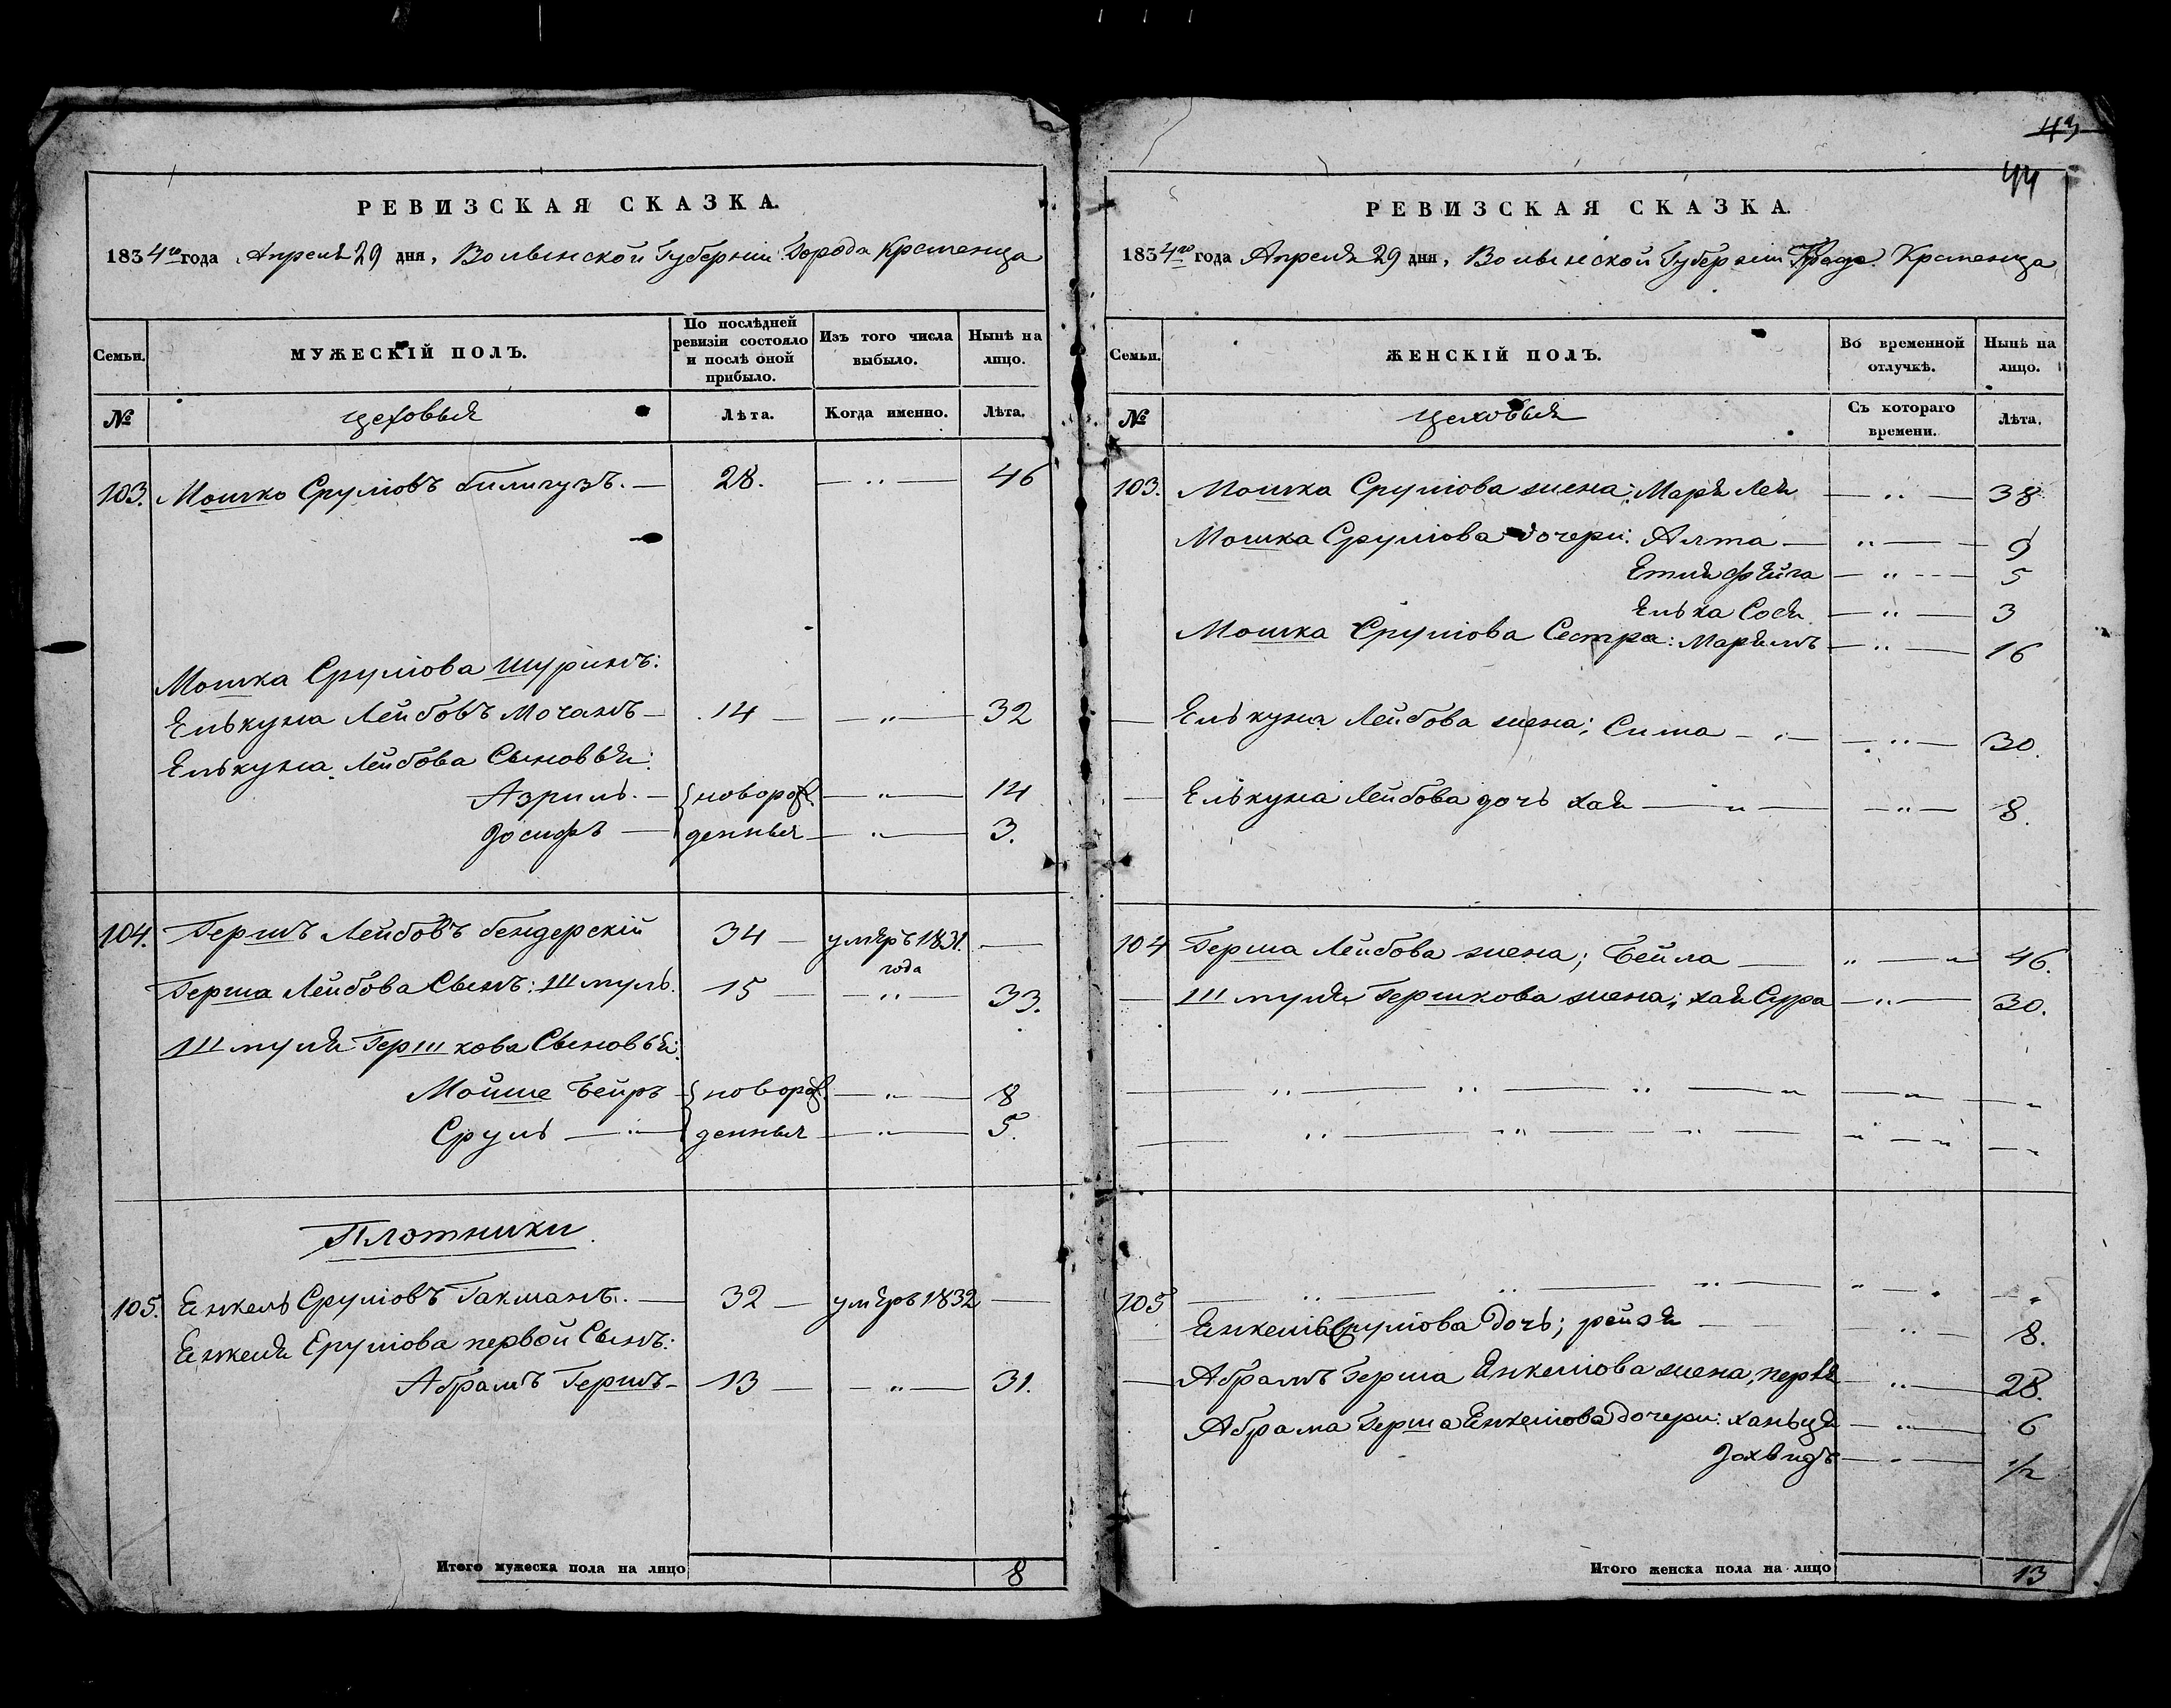 43
44
РЕВИЗСКАЯ СКАЗКА.
1834го года Апреля 29 дня, Волынской Губернии Города Кременца
Семьи.
МУЖЕСКІЙ ПОЛЪ.
По послѣдней ревизіи состояло и послѣ оной прибыло.
Изъ того числа выбыло.
Нынѣ на лицо.
№
цеховыя
Лѣта.
Когда именно.
Лѣта.
103. Мошко Срулiовъ — 28. — " — 46
Мошка Срулiова Шуринъ:
Елькуна Лейбовъ Мочанъ — 14 — — " — 32
Елькуна Лейбова Сыновья:
Азриль. — новорож — " — 14
Иосифъ — денныя — " — 3.
104. Гершъ Лейбовъ бендерскій 34 — умѣръ 1831. —
года
Герша Лейбова Сынъ: Шмуль. 15 — — " — 33.
Шмуля Гершкова Сыновья:
Мойше Бейръ — новорож. — " — 8
Сруль — " — денныя — " — 5.
Плотники
105. Янкель Срулiовъ Гакманъ. — 32 — умѣръ 1832 —
Янкеля Срулiова первой Сынъ:
Абрамъ Гершъ — 13 — — " — 31.
Итого мужеска пола на лицо 8
РЕВИЗСКАЯ СКАЗКА.
1834го года Апреля 29 дня, Волынской Губернии Кременца
Семьи.
ЖЕНСКІЙ ПОЛЪ.
Во временной отлучкѣ.
Нынѣ на лицо.
№
цеховыя
Съ котораго времени.
Лѣта.
103. Мошка Срулiова жена: Маря Лея — " — 38
Мошка Срулiова дочери: Алта — " — 9
Етля Фейга — " — 5
Елька Сося — " — 3
Мошка Срулiова Сестра: Марямъ — " — 16
— Елькуна Лейбова жена; Сима — " — — " — 30.
— Елькуна Лейбова дочь хая — " — — " — 8.
104 Герша Лейбова жена; Бейла — " — " 46.
— Шмуля Гершкова жена; хая Сура — " — 30.
105
— Янкеля Срулiова дочь; рейзя — " — 8.
— Абрамъ Герша Янкелiова жена, перля — " — 28.
Абрама Герша Янкелiова дочери: ханьця — " — 6
Иохвидъ — " — 1/2
Итого женска пола на лицо 13